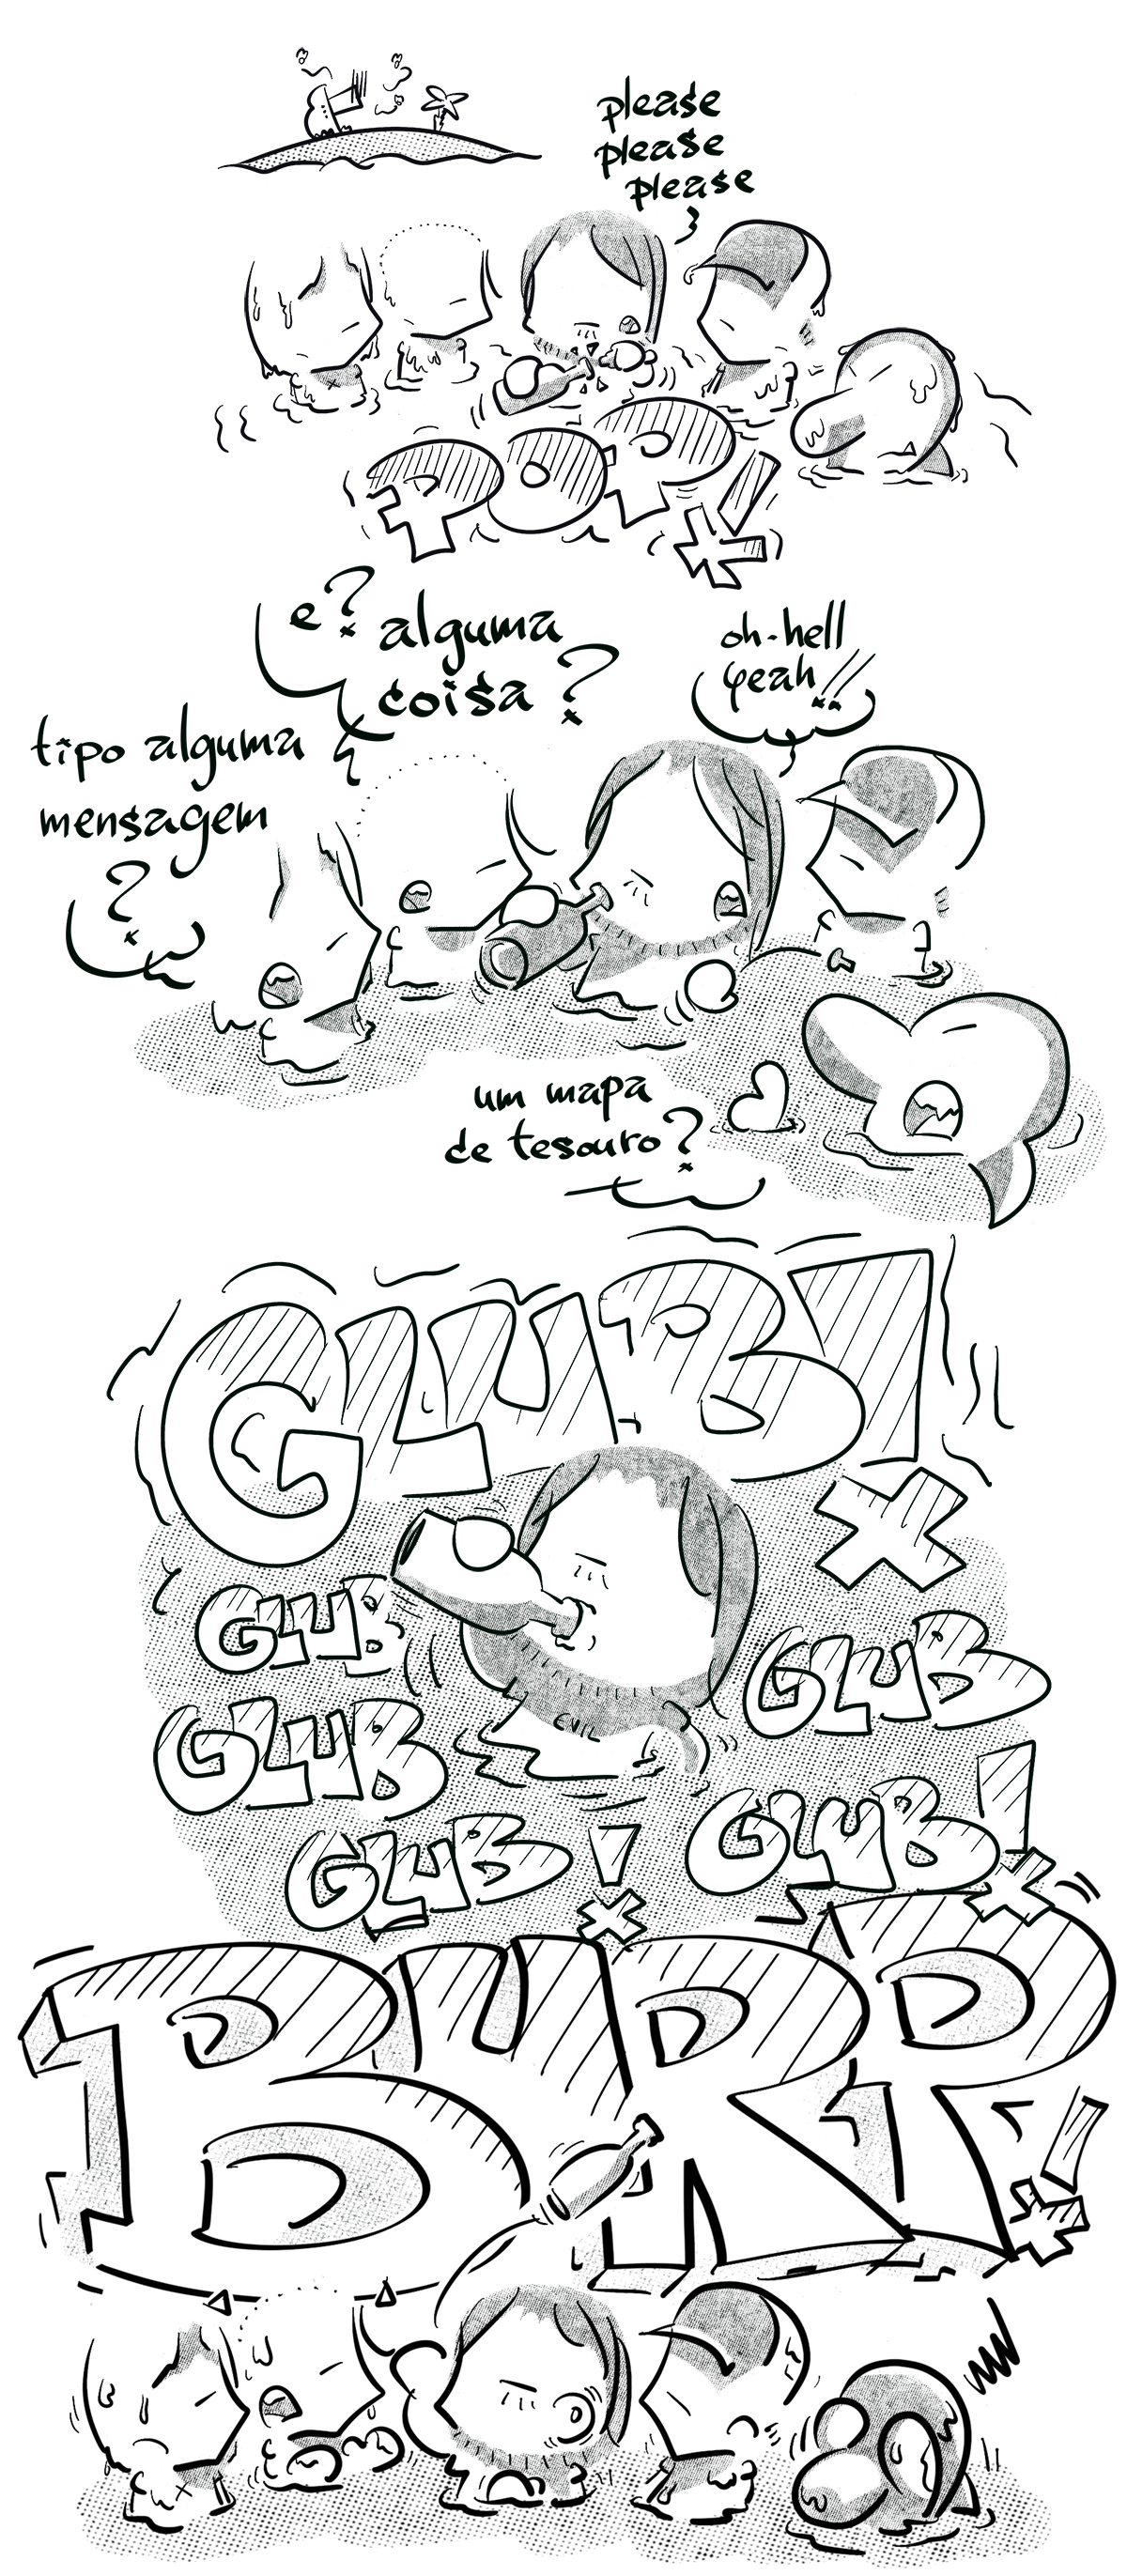 please
please
please
POP!
e?
alguma
coisa?
oh-hell
yeah!!
tipo alguma
mensagem
?
um mapa
de tesouro?
GLUB!
GLUB
GLUB
GLUB
EVIL
GLUB!
GLUB!
BURP!